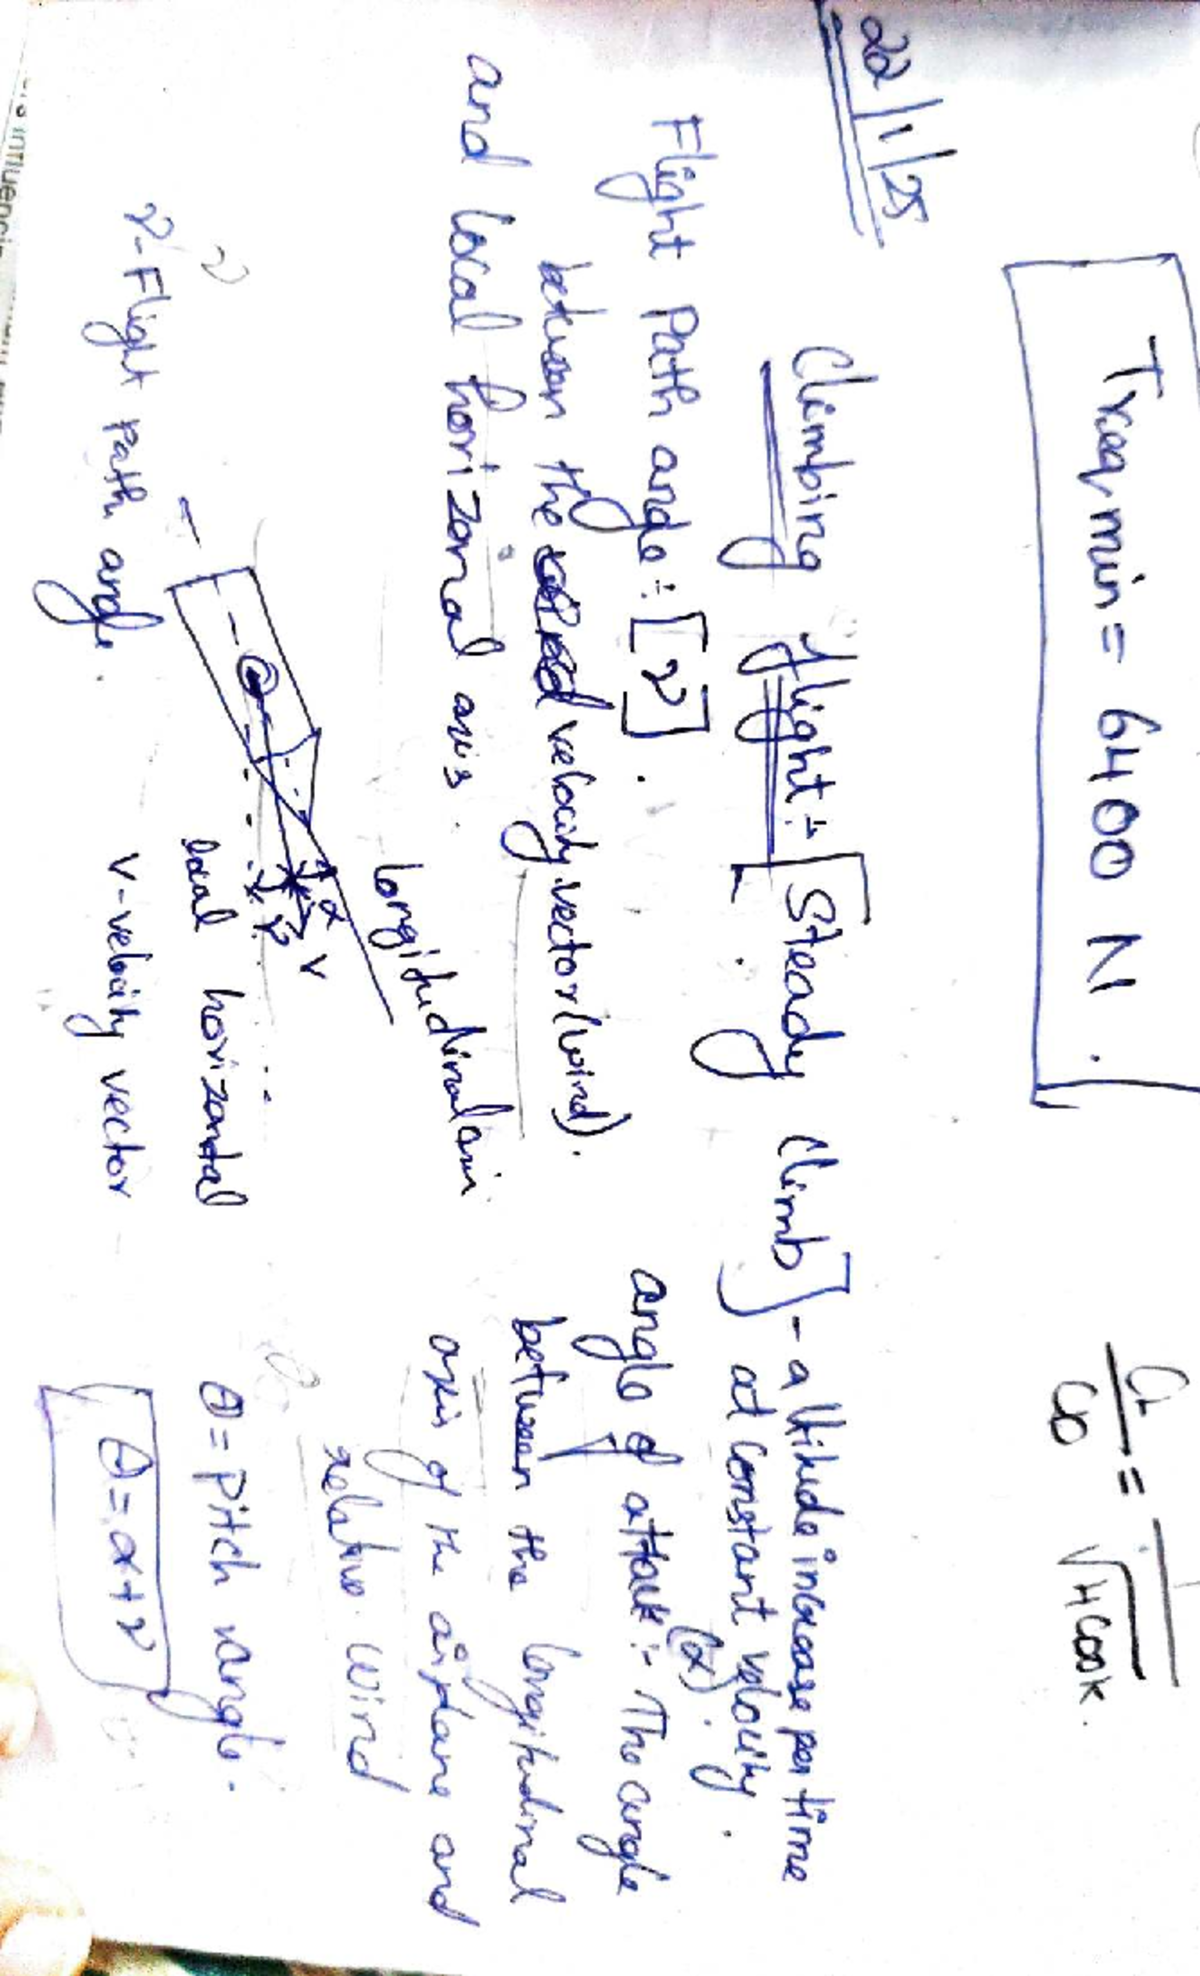 Treq,min = 6400 N.
CL/CD = 1/√4CDOK.
22/1/25
Climbing flight :- [Steady Climb] - altitude increase per time
at constant velocity.
Flight Path angle :- [γ].
between the velocity vector (wind).
and local horizontal axis.
angle of attack :- The angle
(α).
between the longitudinal
axis of the airplane and
relative wind
longitudinal axis
α
V
γ
local horizontal
θ = Pitch angle.
γ - Flight path angle.
V - velocity vector
θ = α + γ